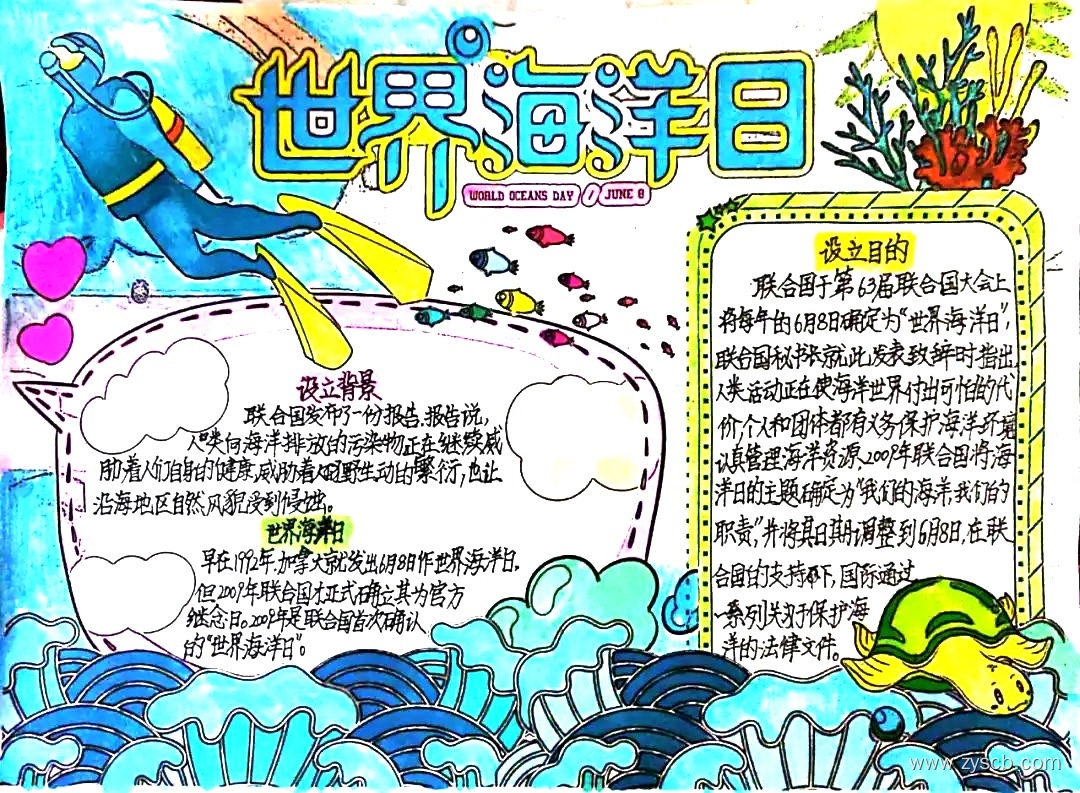 世界海洋日
WORLD OCEANS DAY / JUNE 8
设立背景
联合国发布了一份报告,报告说,
人类向海洋排放的污染物正在继续威
胁着人们自身的健康,威胁着野生动的繁衍,也让
沿海地区自然风貌受到侵蚀。
世界海洋日
早在1992年,加拿大就发出6月8日作世界海洋日.
但2009年联合国才正式确立其为官方
纪念日。2009年是联合国首次确认
的“世界海洋日”。
设立目的
联合国于第63届联合国大会上
将每年的6月8日确定为“世界海洋日”,
联合国秘书长就此发表致辞时指出,
人类活动正在使海洋世界付出可怕的代
价,个人和团体都有义务保护海洋环境
认真管理海洋资源,2009年联合国将海
洋日的主题确定为“我们的海洋,我们的
职责”,并将其日期调整到6月8日,在联
合国的支持下,国际通过
一系列关于保护海
洋的法律文件。
www.zyscb.com